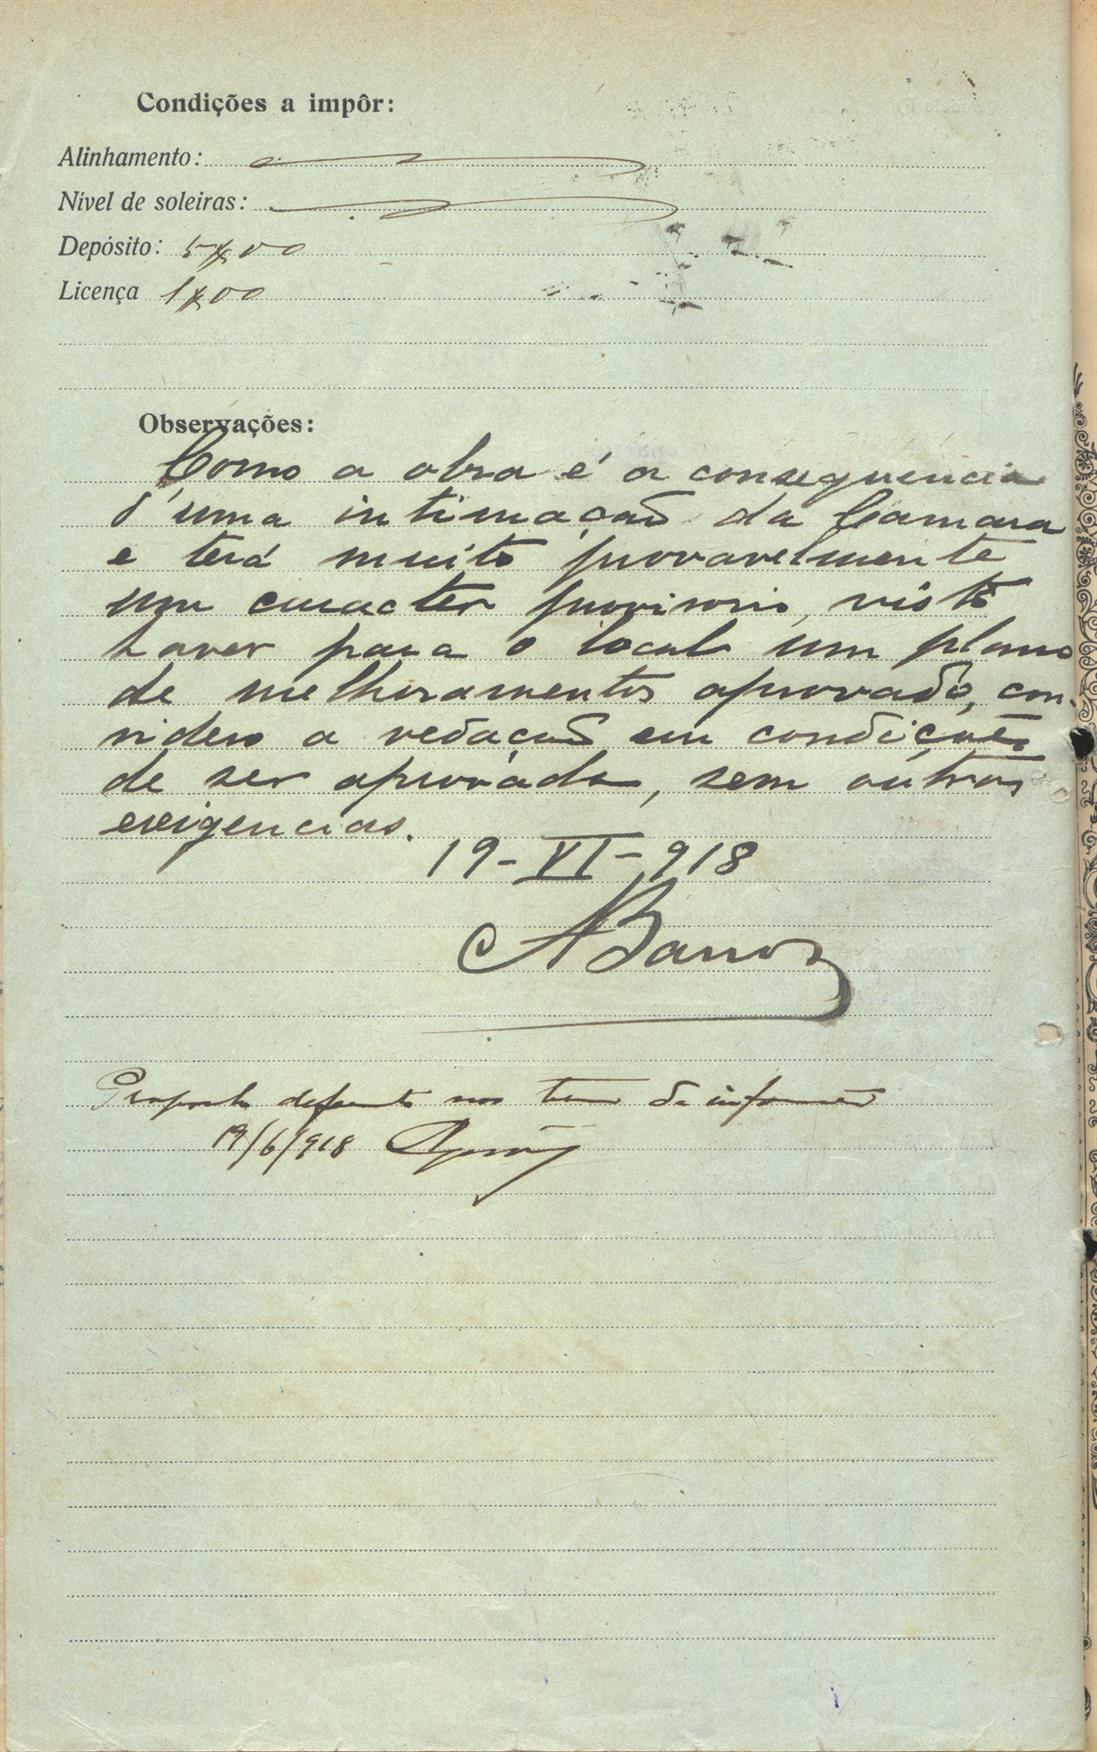 Condições a impôr:
Alinhamento:
Nível de soleiras:
Depósito: 5$00
Licença 1$00
Observações:
Como a obra é a consequencia
d'uma intimação da Camara
e terá muito provavelmente
um caracter provisorio, visto
haver para o local um plano
de melhoramentos aprovado, con-
sidero a vedação em condições
de ser aprovada, sem outras
exigencias.
19-VI-918
A Barros
Proposta deferimto nos termos da informação
19/6/918